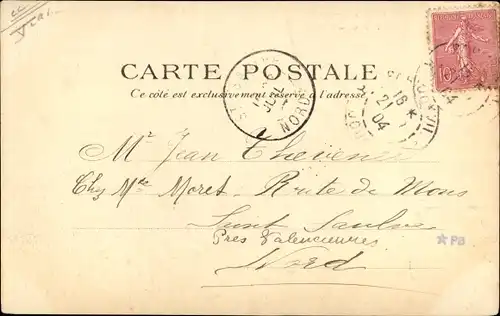 CARTE POSTALE
Ce côté est exclusivement réservé à l'adresse
Mr Jean Thevenin
Chez Mme Moret. Route de Mons
Saint Saulve
Près Valenciennes
Nord
NORD
16
21
04
10
PB